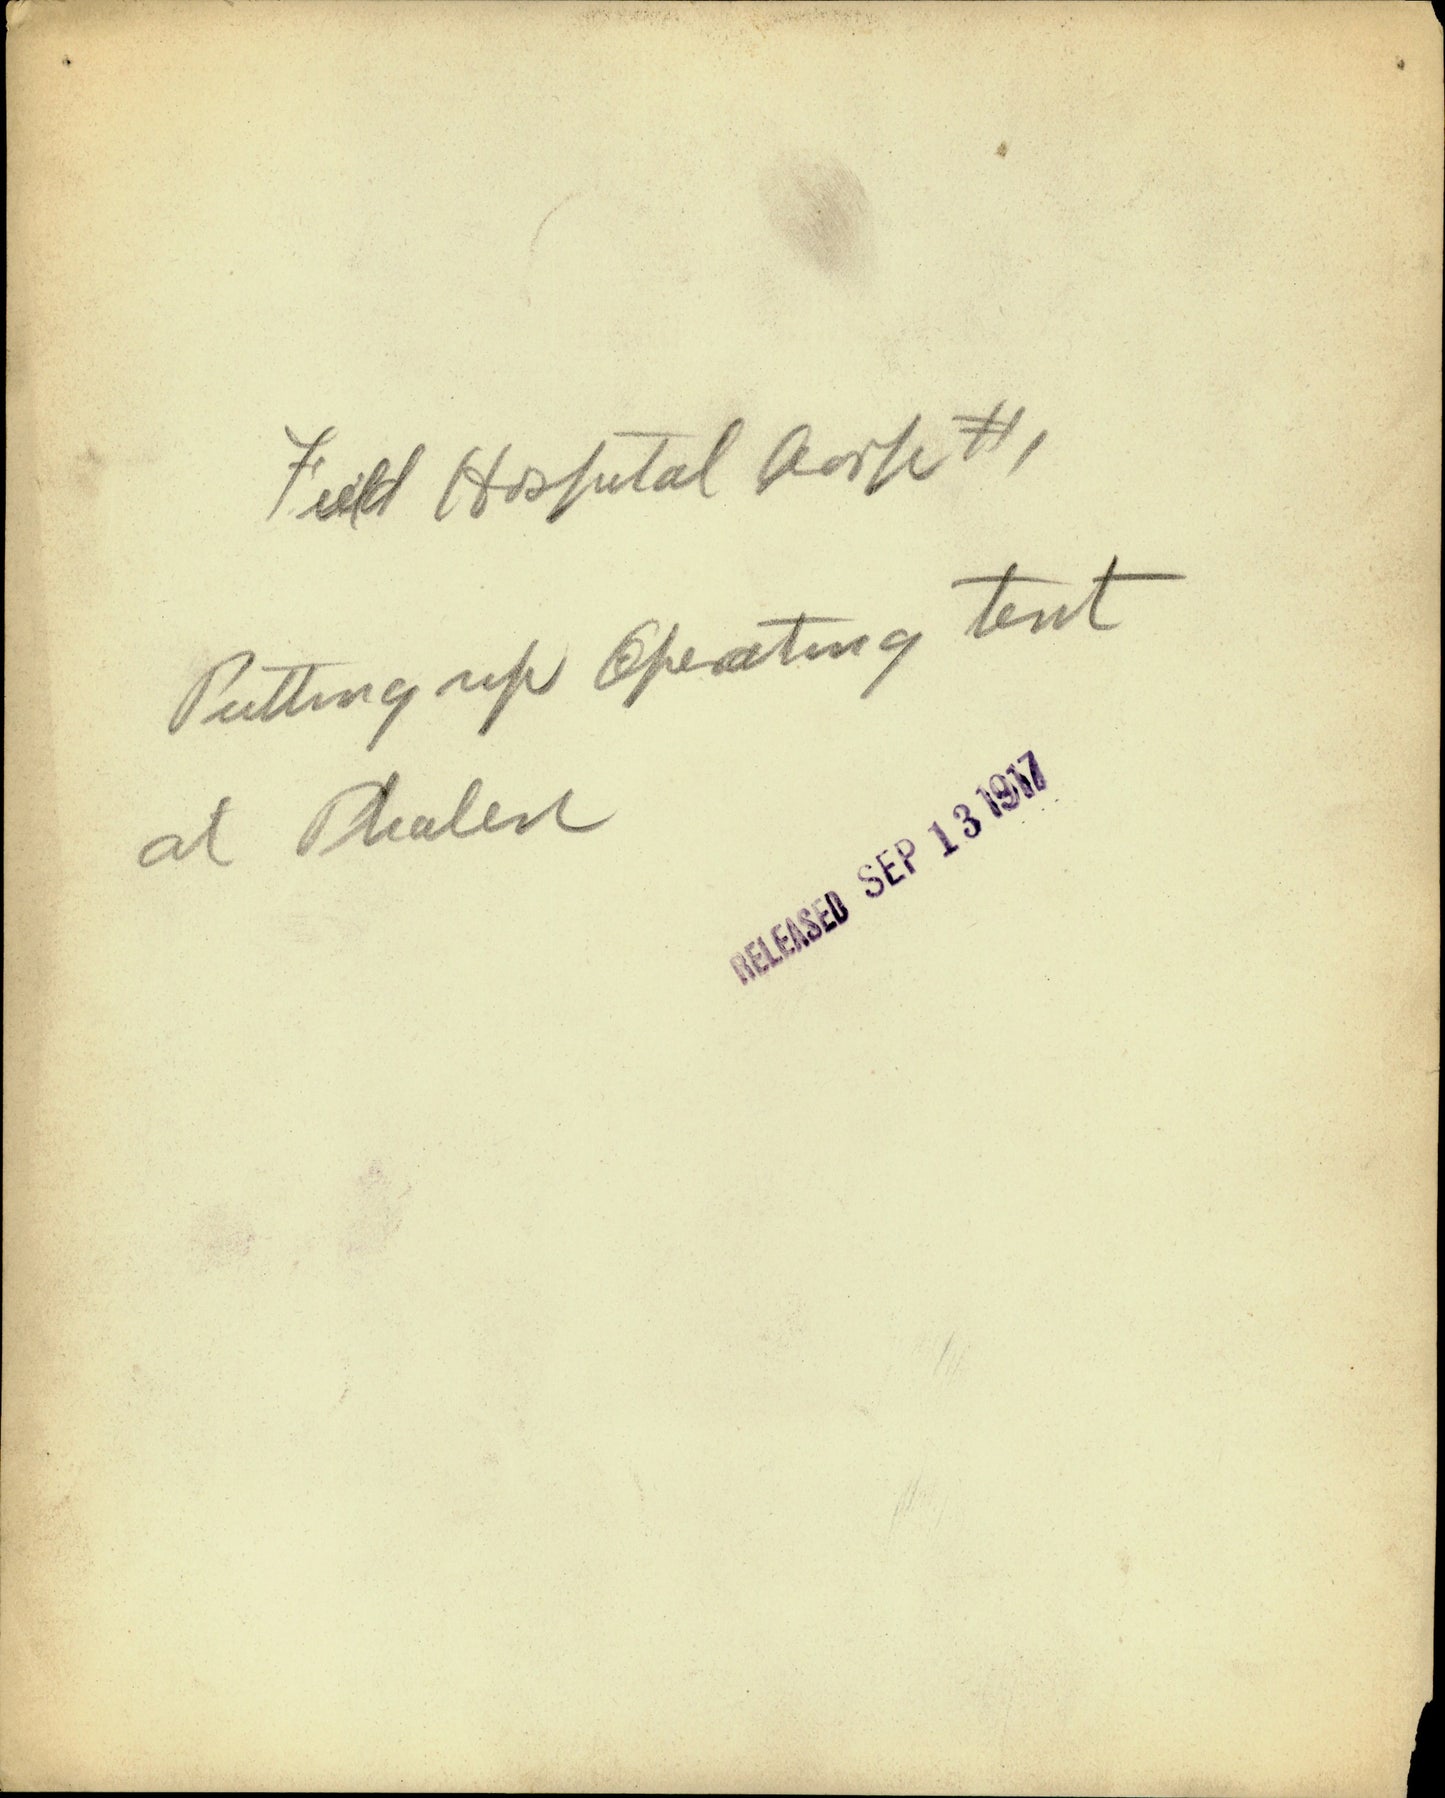 Field Hospital Corps #1
Putting up Operating tent
at Phalen
RELEASED SEP 13 1917